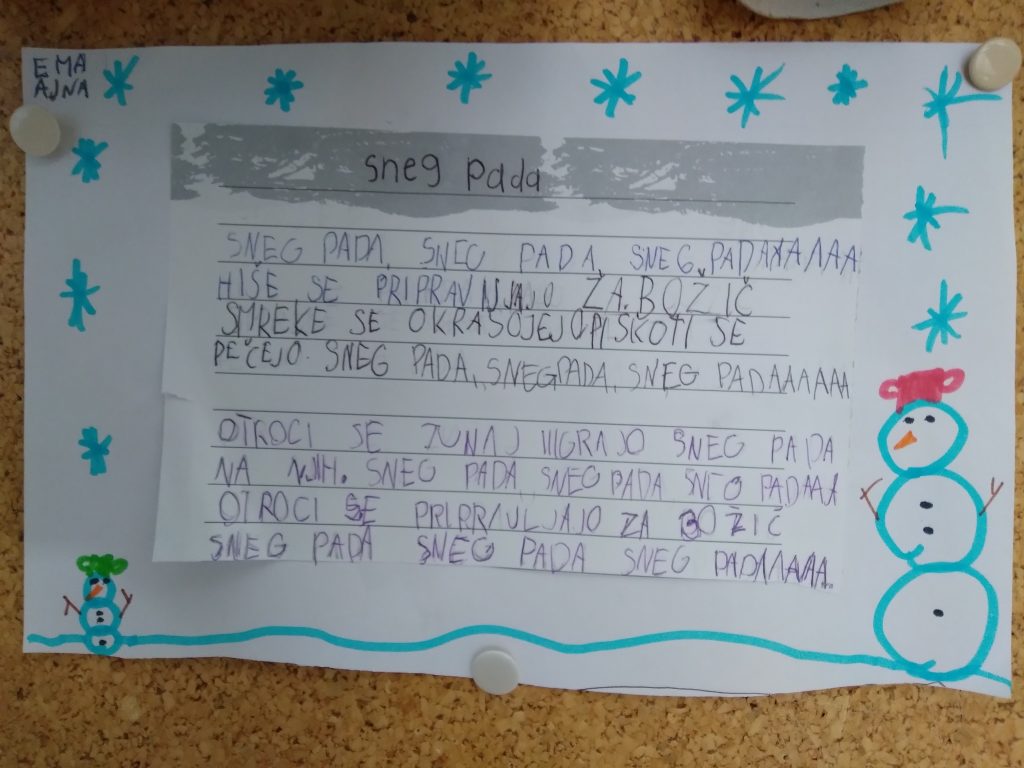 EMA
AJNA
sneg pada
SNEG PADA, SNEG PADA, SNEG PADAAAAAA
HIŠE SE PRIPRAVLJAJO ZA BOŽIČ
SMREKE SE OKRASUJEJO PIŠKOTI SE
PEČEJO. SNEG PADA, SNEG PADA, SNEG PADAAAAAA
OTROCI SE ZUNAJ IGRAJO SNEG PADA
NA NJIH. SNEG PADA SNEG PADA SNEG PADAAA
OTROCI SE PRIPRAVLJAJO ZA BOŽIČ
SNEG PADA SNEG PADA SNEG PADAAAAAA.